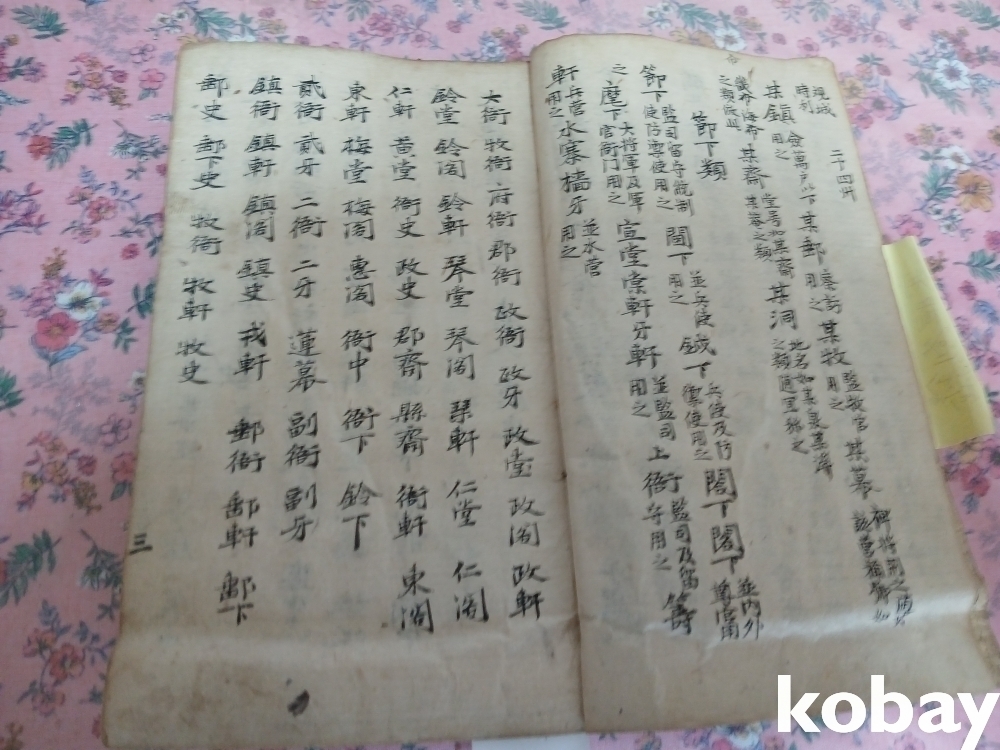 二十四卅
某鎭 用之 某郵 察訪用之 某牧 監牧官用之 某幕
某齋 堂号如某齋某菴之類 某洞 地名如某泉某澤之類通里称之
節下類
節下 監司留守統制使防禦使用之 閤下 並兵使用之 鉞下 兵使及防禦使用之 閤下閣下 並內外尊當用
之 麾下 大將軍及軍官衙門用之 宣堂棠軒牙軒 並監司用之 上衙 監司及留守用之 籌
軒 下兵營用之 水寨檣牙 並水營用之
大衙 牧衙 府衙 郡衙 政衙 政牙 政堂 政閤 政軒
鈴堂 鈴閤 鈴軒 琴堂 琴閤 琹軒 仁堂 仁閤
仁軒 黃堂 衙史 政史 郡齋 縣齋 衙軒 東閤
東軒 梅堂 梅閤 惠閤 衙中 衙下 鈴下
貳衙 貳牙 二衙 二牙 蓮幕 副衙 副牙
鎭衙 鎭軒 鎭閤 鎭史 戎軒 郵衙 郵軒 郵下
郵史 郵下史 牧衙 牧軒 牧史
三
kobay